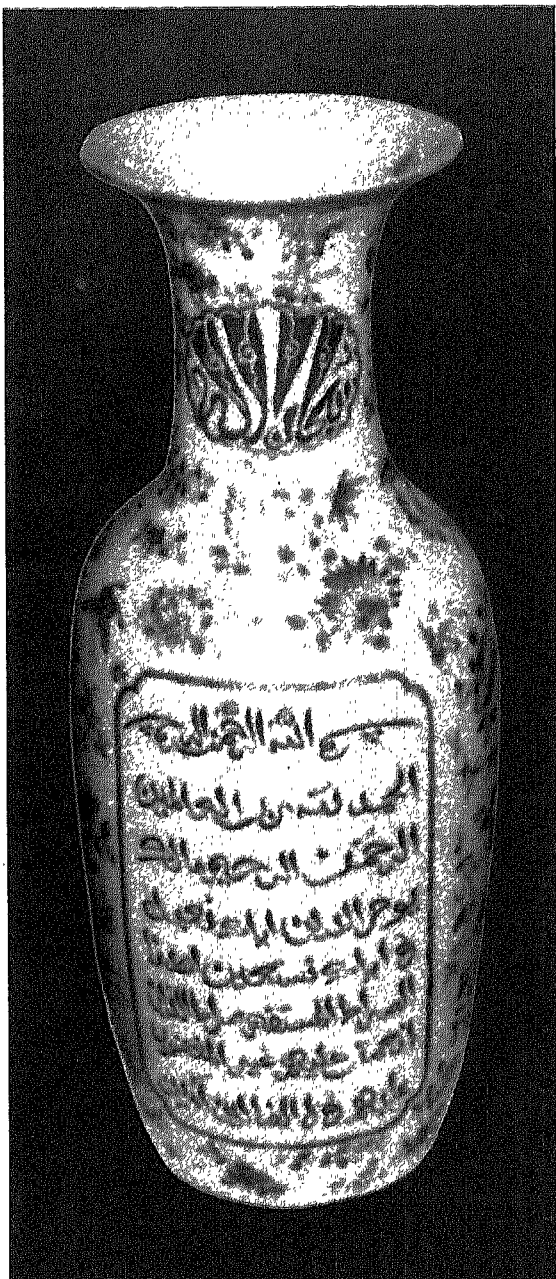 بسم الله الرحمن الرحيم
الحمد لله رب العالمين
الرحمن الرحيم مالك
يوم الدين اياك نعبد
و اياك نستعين اهدنا
الصراط المستقيم صراط الذين
انعمت عليهم غير المغضوب
عليهم ولا الضالين